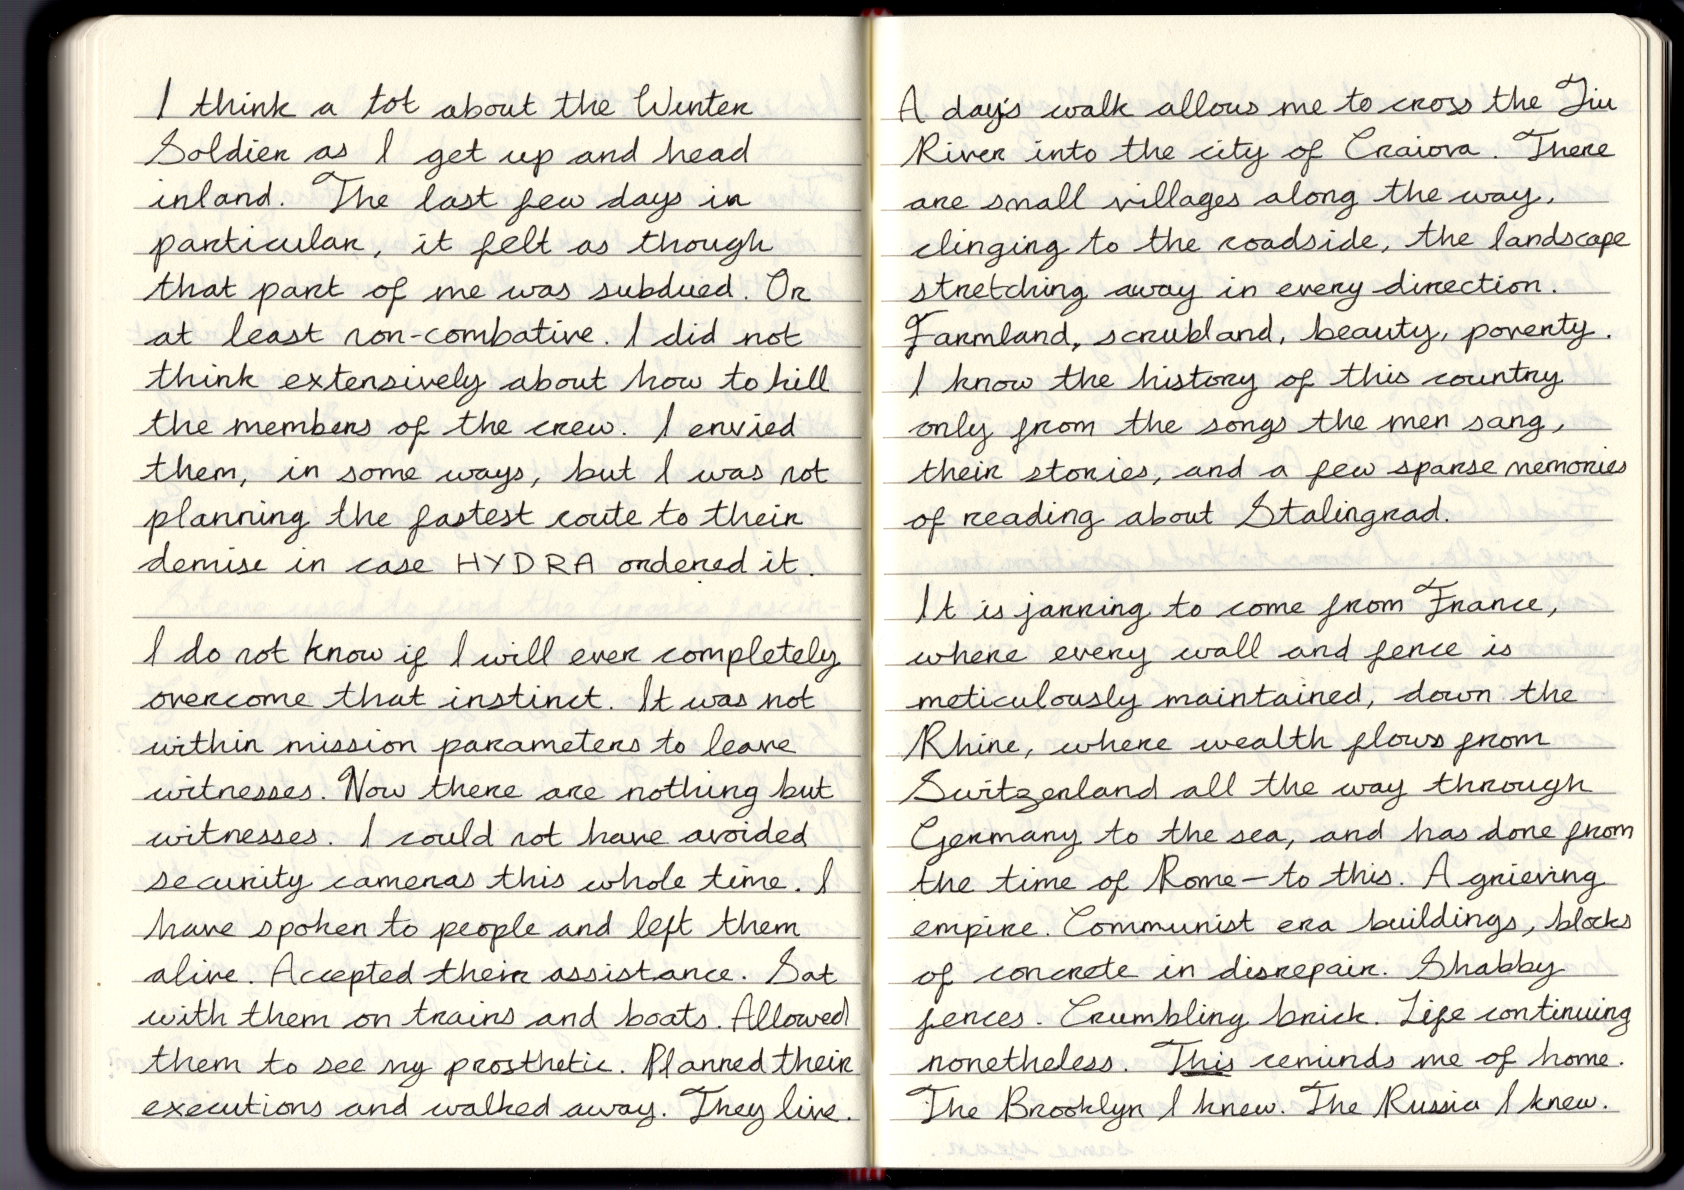 I think a lot about the Winter
Soldier as I get up and head
inland. The last few days in
particular, it felt as though
that part of me was subdued. Or
at least non-combative. I did not
think extensively about how to kill
the members of the crew. I envied
them, in some ways, but I was not
planning the fastest route to their
demise in case HYDRA ordered it.
I do not know if I will ever completely
overcome that instinct. It was not
within mission parameters to leave
witnesses. Now there are nothing but
witnesses. I could not have avoided
security cameras this whole time. I
have spoken to people and left them
alive. Accepted their assistance. Sat
with them on trains and boats. Allowed
them to see my prosthetic. Planned their
executions and walked away. They live.
A day's walk allows me to cross the Jiu
River into the city of Craiova. There
are small villages along the way,
clinging to the roadside, the landscape
stretching away in every direction.
Farmland, scrubland, beauty, poverty.
I know the history of this country
only from the songs the men sang,
their stories, and a few sparse memories
of reading about Stalingrad.
It is jarring to come from France,
where every wall and fence is
meticulously maintained, down the
Rhine, where wealth flows from
Switzerland all the way through
Germany to the sea, and has done from
the time of Rome—to this. A grieving
empire. Communist era buildings, blocks
of concrete in disrepair. Shabby
fences. Crumbling brick. Life continuing
nonetheless. This reminds me of home.
The Brooklyn I knew. The Russia I knew.